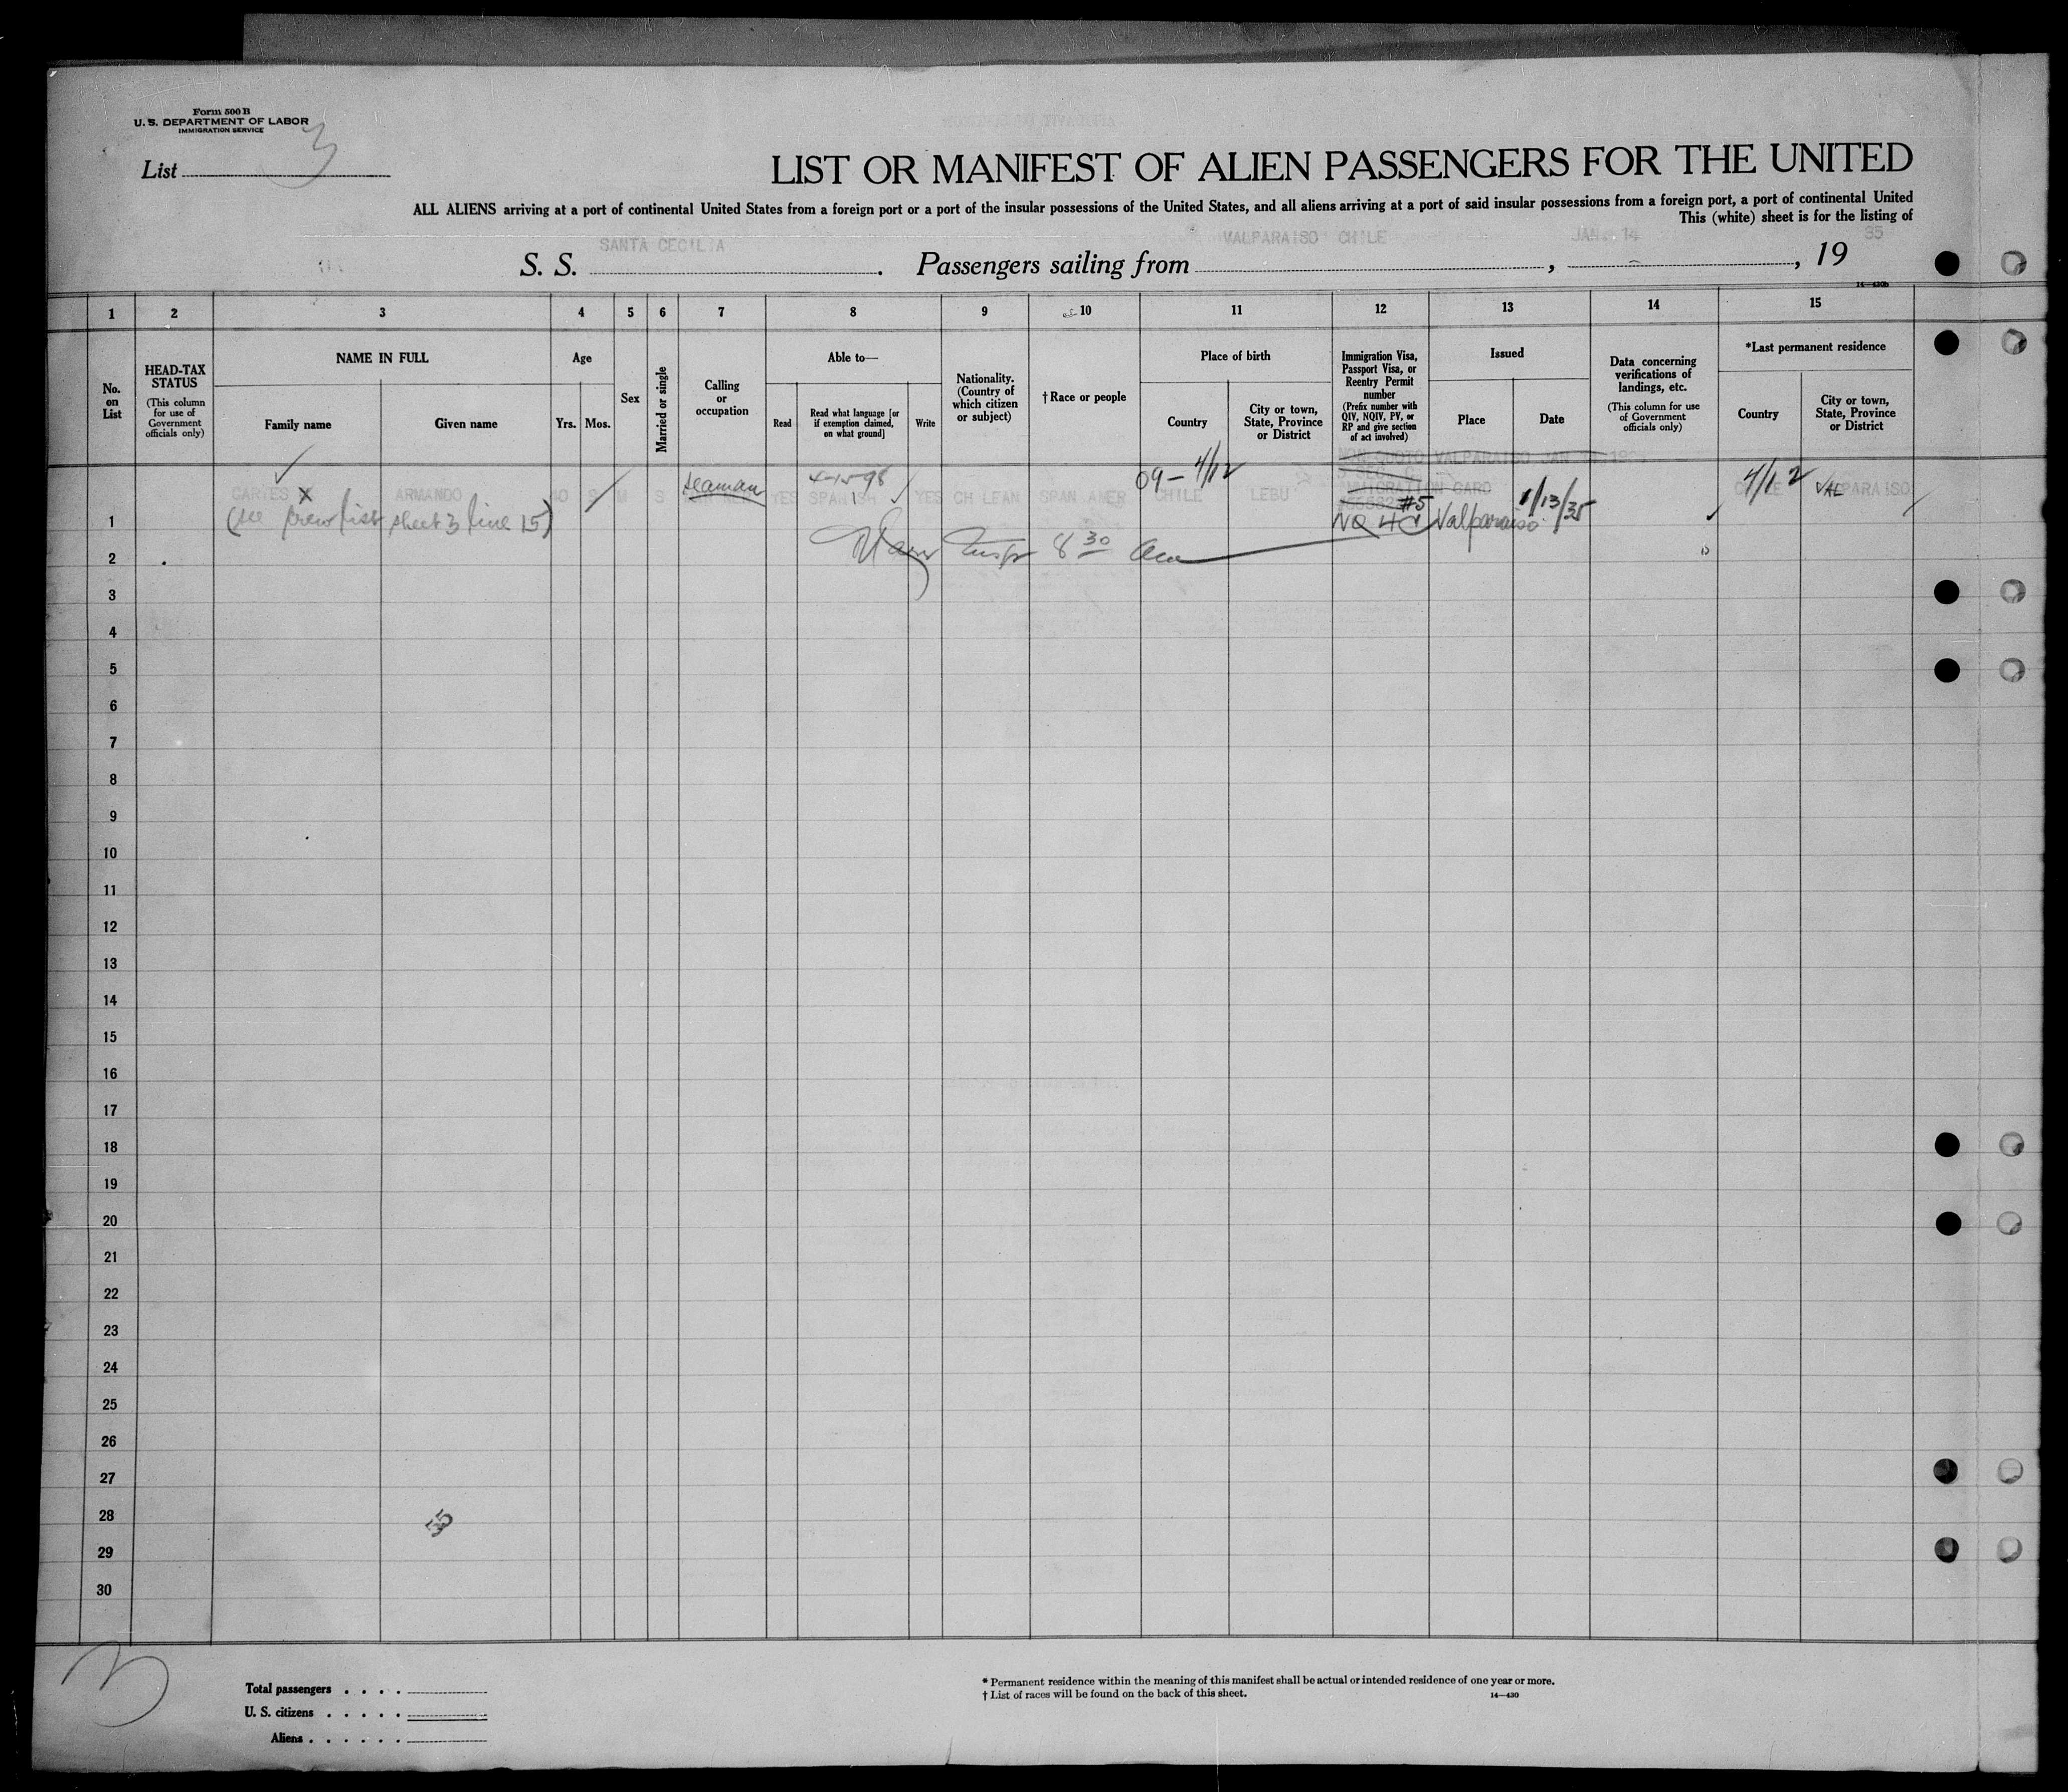 Form 500 B
U. S. DEPARTMENT OF LABOR
IMMIGRATION SERVICE
List 3
LIST OR MANIFEST OF ALIEN PASSENGERS FOR THE UNITED
ALL ALIENS arriving at a port of continental United States from a foreign port or a port of the insular possessions of the United States, and all aliens arriving at a port of said insular possessions from a foreign port, a port of continental United
This (white) sheet is for the listing of
S. S. SANTA CECILIA. Passengers sailing from VALPARAISO CHILE, JAN. 14, 19 35
14—430b
1 2 3 4 5 6 7 8 9 10 11 12 13 14 15
No. on List
HEAD-TAX STATUS
(This column for use of Government officials only)
NAME IN FULL
Family name
Given name
Age
Yrs. Mos.
Sex
Married or single
Calling or occupation
Able to—
Read
Read what language [or if exemption claimed, on what ground]
Write
Nationality. (Country of which citizen or subject)
† Race or people
Place of birth
Country
City or town, State, Province or District
Immigration Visa, Passport Visa, or Reentry Permit number
(Prefix number with QIV, NQIV, PV, or RP and give section of act involved)
Issued
Place
Date
Data concerning verifications of landings, etc.
(This column for use of Government officials only)
*Last permanent residence
Country
City or town, State, Province or District
1 CARTES X ARMANDO 40 M S seaman YES SPANISH YES CHILEAN SPAN AMER CHILE LEBU
4-15-98
09— 4/12
VALPARAISO JAN
IMMIGRATION CARD
#5
Valparaiso 1/13/35
4/12 VALPARAISO
(see crew list sheet 3 line 15)
8 30
2
3
4
5
6
7
8
9
10
11
12
13
14
15
16
17
18
19
20
21
22
23
24
25
26
27
28
29
30
3
Total passengers . . . .
U. S. citizens . . . . .
Aliens . . . . . .
* Permanent residence within the meaning of this manifest shall be actual or intended residence of one year or more.
† List of races will be found on the back of this sheet.
14—430